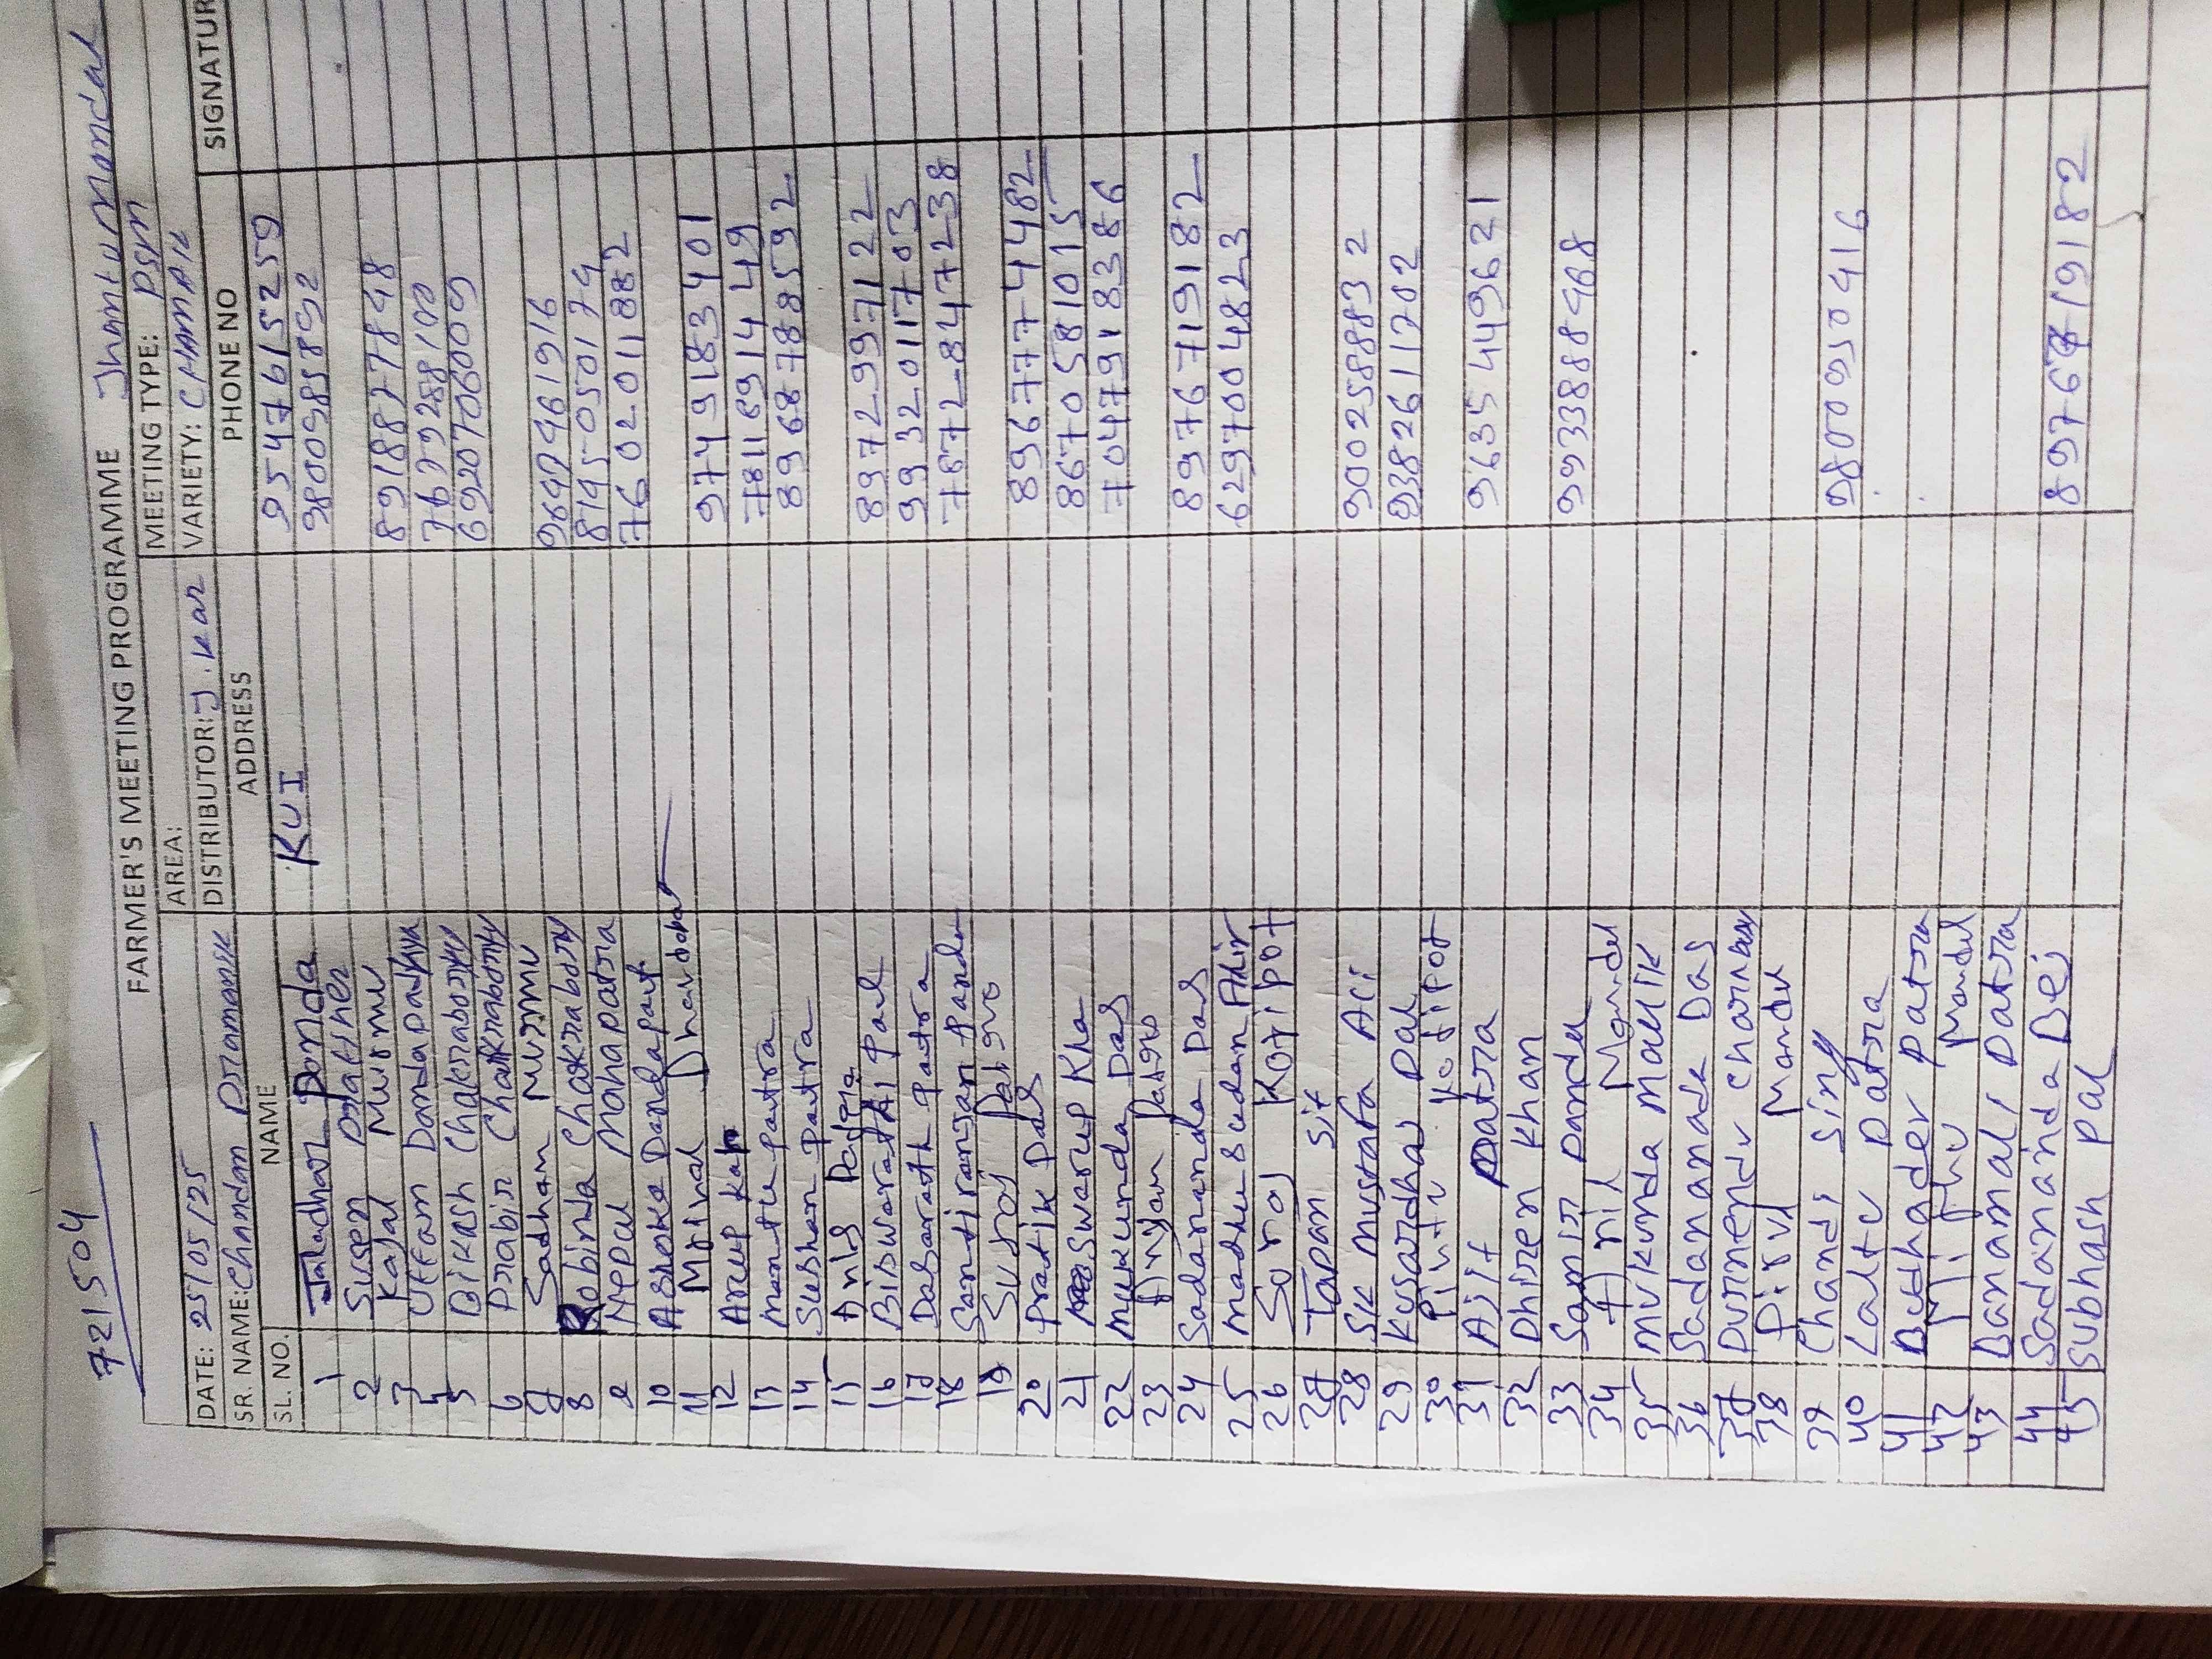 721504
FARMER'S MEETING PROGRAMME Jhantu Mondal
DATE: 25/05/25 AREA: MEETING TYPE: PSM
SR. NAME: Chandan Pramanik DISTRIBUTOR: J. Kar VARIETY: CHAMAK
SL. NO. NAME ADDRESS PHONE NO SIGNATUR
1 Jaladhar Panda KUI 9547615259
2 Susen 9800985892
3 Kajal Murmu
4 Uttam Dandapathya 8918827848
5 Bikash Chakraborty
6 Prabir Chakraborty 6920706009
7 Sadhan Murmu
8 Robinda Chakraborty 9647461916
9 Neppal Mahapatra
10 Ashoke Dandapat 7602011882
11 Mrinal
12 Arup Kar 9749183401
13 Mantu Patra
14 Sushan Patra 8968788592
15
16 Biswarathi Pal 8972997122
17 Dasarath Patra 9932011703
18 Santiranjan Panda 7872847238
19 Suroj
20 Pratik Das 8967774482
21 Swarup Kha 8670581015
22 Mukunda Das 7047918386
23
24 Sadananda Das 8976719182
25 Madhu Sudan Ahir 6297004823
26 Saroj Kotipot
27 Tapan Sit
28 SK Mustafa Ali 9002588832
29 Kusardhaj Pal 9382611702
30 Pintu Kotipot
31 Ajit Patra 9635449621
32 Dhiren Khan
33 Samir Panda 9933888468
34 Anil Mandal
35 Mukunda Mallik
36 Sadananda Das
37 Purnendu Charnkar
38 Mandal
39 Chandi Sing
40 Laltu Patra 9800950416
41 Buthader Patra
42 Mithu Mandal
43 Banamali Patra
44 Sadananda Bej
45 Subhash Pal